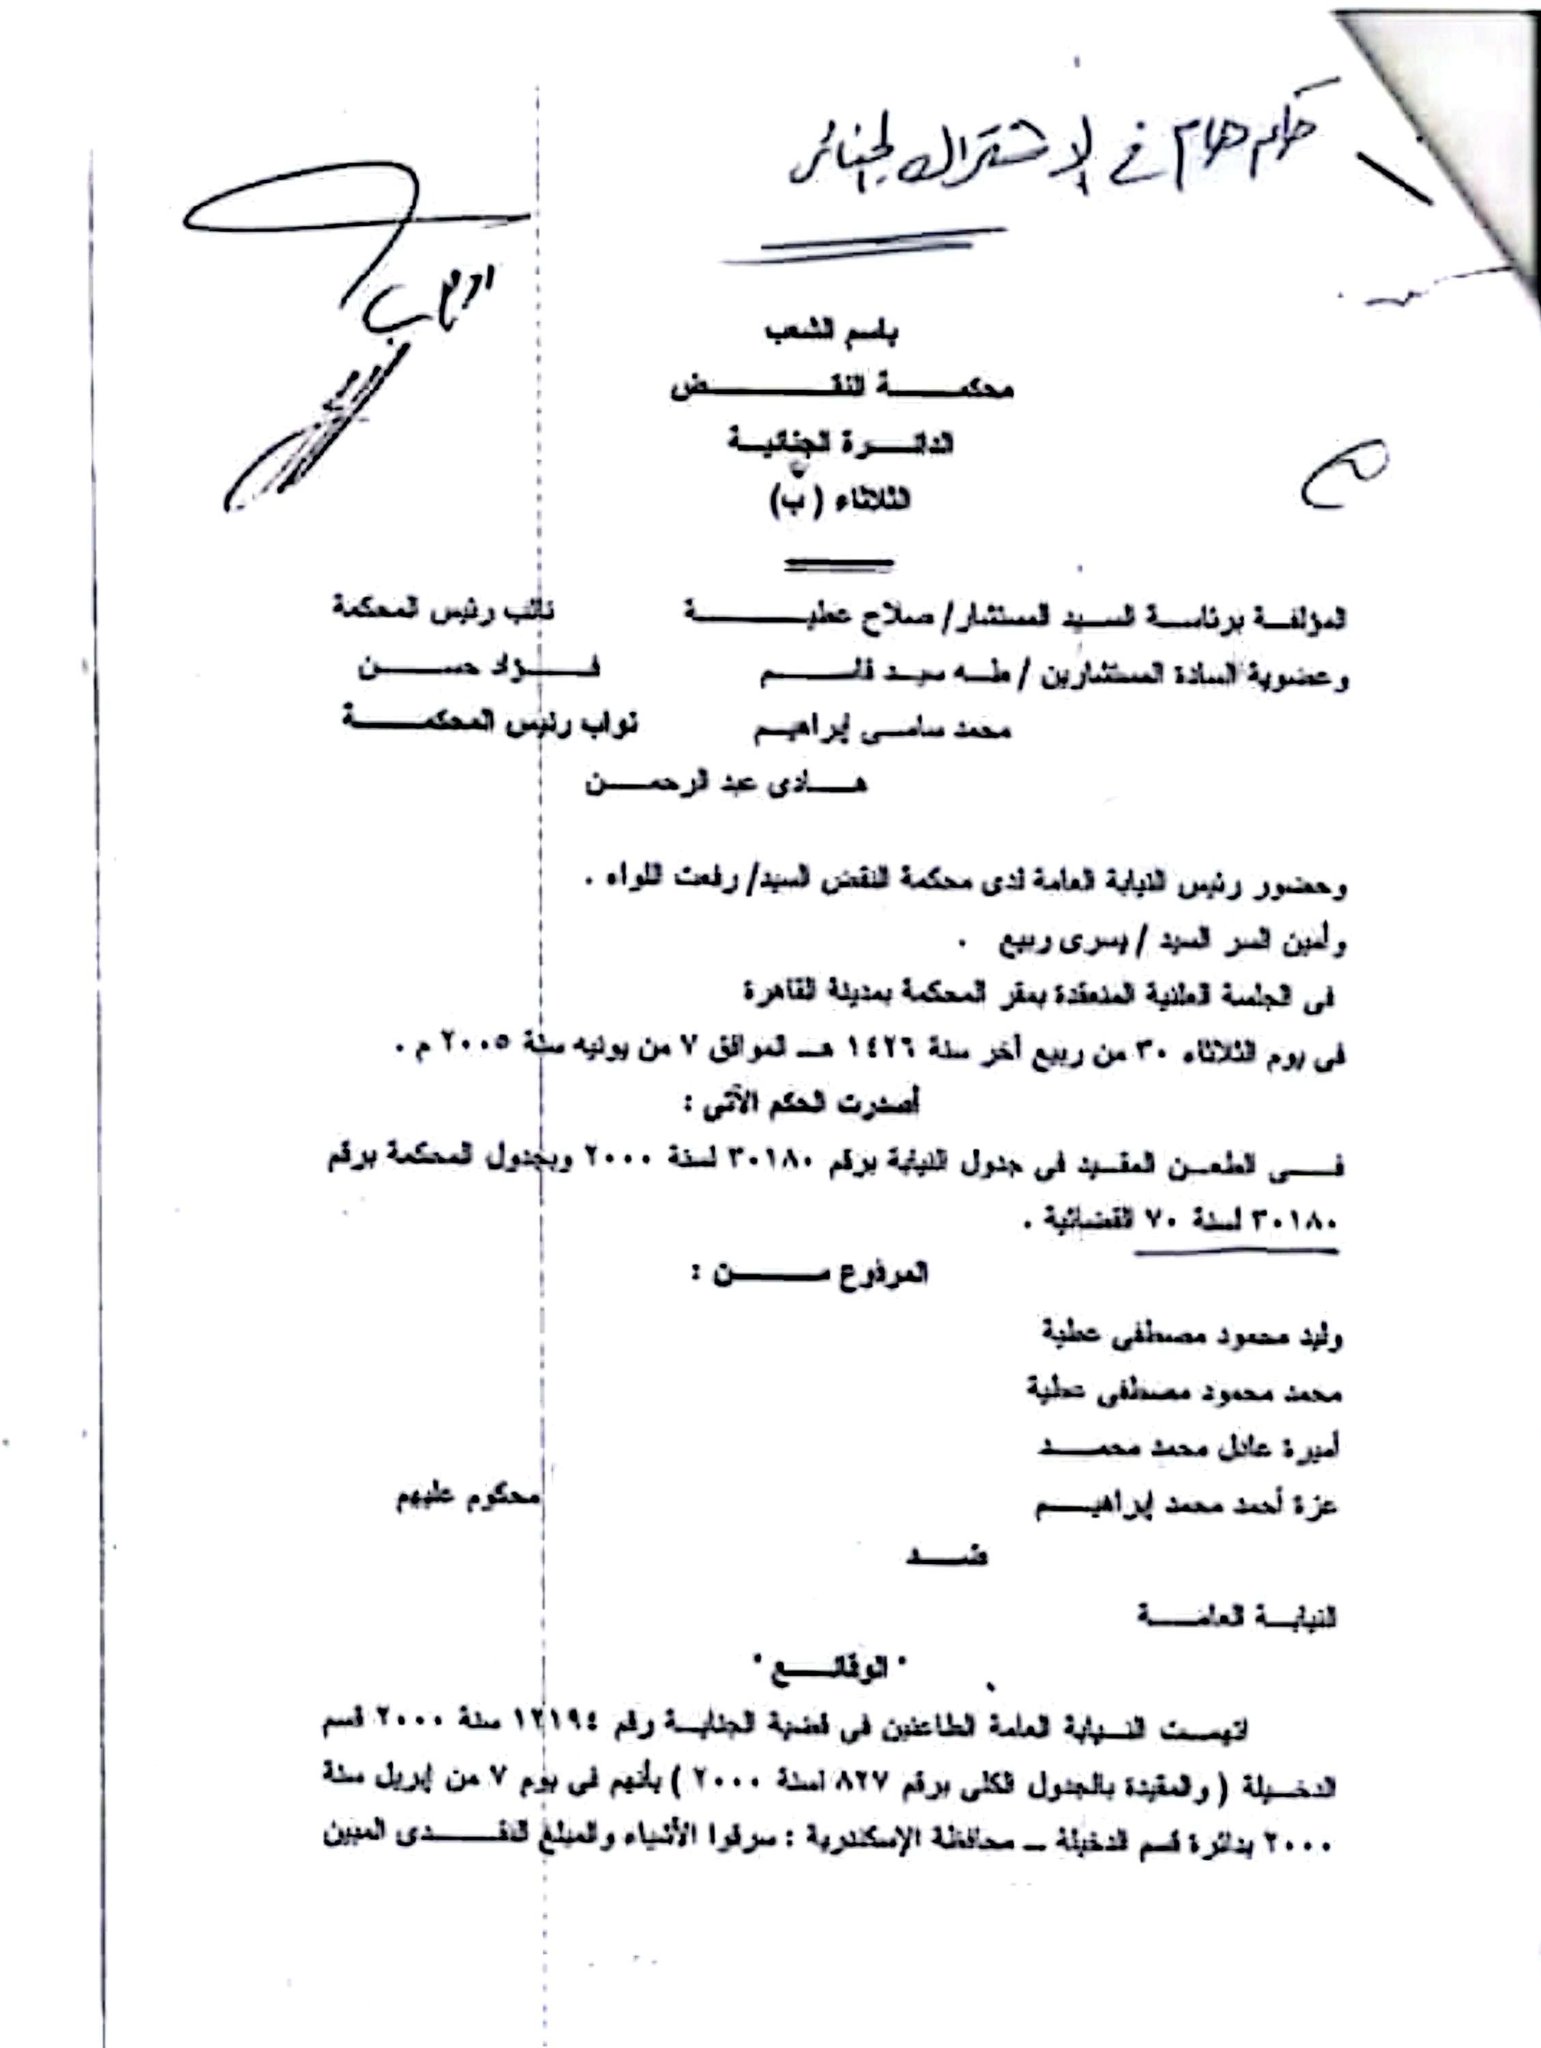 حكم هام في الاشتراك الجنائى
باسم الشعب
محكمـــة النقـــض
الدائــرة الجنائية
الثلاثاء ( ب )
المؤلفـة برئاسـة السـيد المستشار/ صلاح عطيـــة نائب رئيس المحكمة
وعضوية السادة المستشارين / طـه سيـد قاسـم فــؤاد حســن
محمد سامـى إبراهيـم نواب رئيس المحكمـــة
هــادى عبد الرحمــن
وحضور رئيس النيابة العامة لدى محكمة النقض السيد/ رفعت اللواء .
وأمين السر السيد / يسرى ربيع .
فى الجلسة العلنية المنعقدة بمقر المحكمة بمدينة القاهرة
فى يوم الثلاثاء ٣٠ من ربيع أخر سنة ١٤٢٦ هــ الموافق ٧ من يونيه سنة ٢٠٠٥ م .
أصدرت الحكم الآتى :
فــى الطعـن المقـيد فى جدول النيابة برقم ٣٠١٨٠ لسنة ٢٠٠٠ وبجدول المحكمة برقم
٣٠١٨٠ لسنة ٧٠ القضائية .
المرفوع مـــن :
وليد محمود مصطفى عطية
محمد محمود مصطفى عطية
أميرة عادل محمد محمــد
عزة أحمد محمد إبراهيــم محكوم عليهم
ضــد
النيابـة العامــة
" الوقائــع "
اتهمـت النـيابة العامة الطاعنين فى قضية الجنايـة رقم ١٢١٩٤ سنة ٢٠٠٠ قسم
الدخـيلة ( والمقيدة بالجدول الكلى برقم ٨٢٧ لسنة ٢٠٠٠ ) بأنهم فى يوم ٧ من إبريل سنة
٢٠٠٠ بدائرة قسم الدخيلة ــ محافظة الإسكندرية : سرقوا الأشياء والمبلغ النقــدى المبين